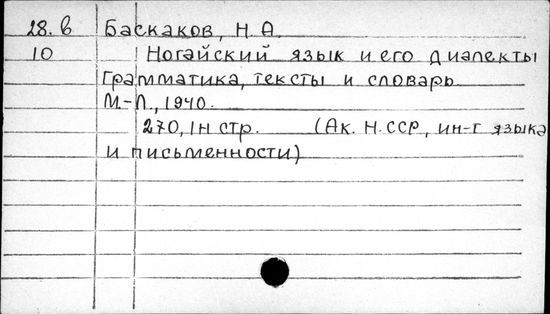 28. в Баскаков, Н.А.
10 Ногайский язык и его диалекты
Грамматика, тексты и словарь
М.-Л., 1940.
270, 1н стр. (Ак. Н. ССР, ин-т языка
и письменности)